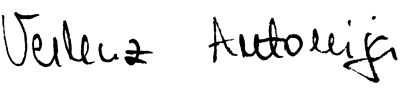 Verlenz Antonija